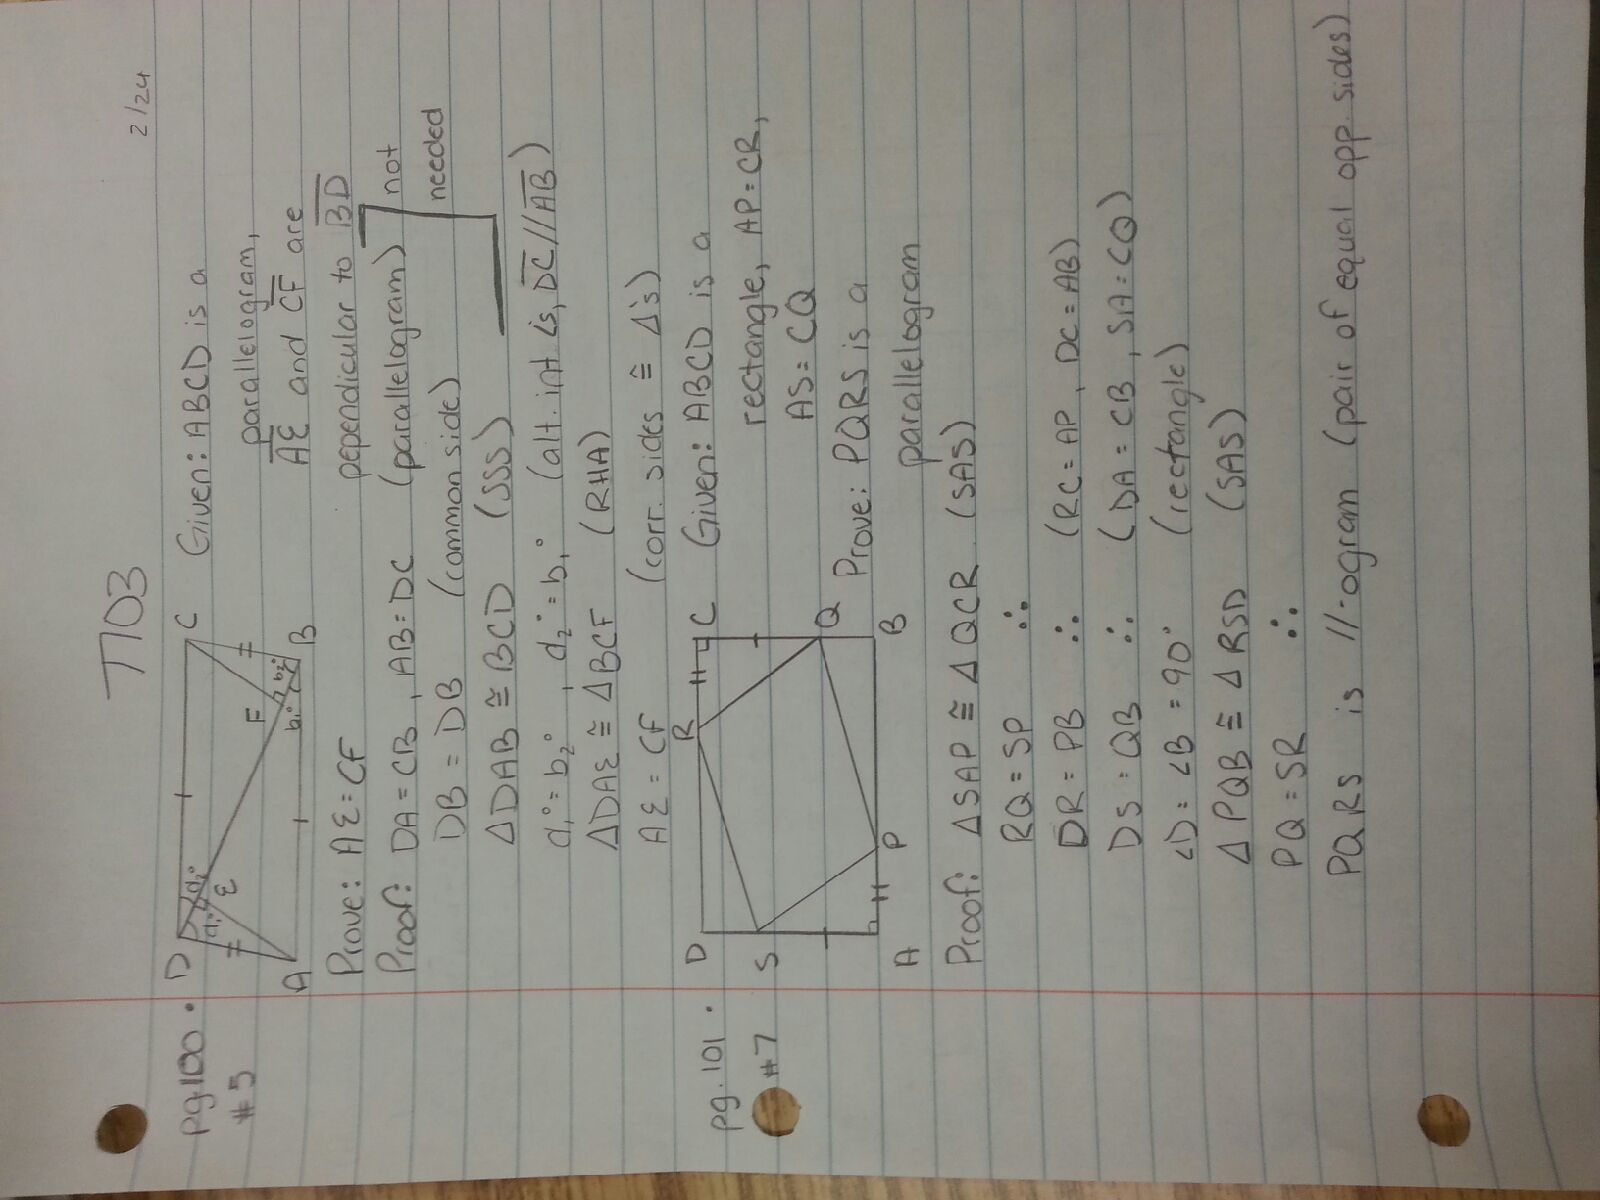 T103
2/24
pg.100 •
#5
D
C
A
B
E
F
d₁°
d₂°
b₁°
b₂°
Given: ABCD is a
parallelogram,
A̅E̅ and C̅F̅ are
pependicular to B̅D̅
Prove: AE = CF
Proof: DA = CB, AB = DC (parallelogram) not
DB = DB (common side) needed
ΔDAB ≅ BCD (SSS)
d₁° = b₂°, d₂° = b₁° (alt. int ∠s, D̅C̅//A̅B̅)
ΔDAE ≅ ΔBCF (RHA)
AE = CF (corr. sides ≅ Δ's)
pg. 101 •
#7
D
R
C
S
Q
A
P
B
Given: ABCD is a
rectangle, AP = CR,
AS = CQ
Prove: PQRS is a
parallelogram
Proof: ΔSAP ≅ ΔQCR (SAS)
RQ = SP ∴
DR = PB ∴ (RC = AP, DC = AB)
DS = QB ∴ (DA = CB, SA = CQ)
∠D = ∠B = 90° (rectangle)
Δ PQB ≅ Δ RSD (SAS)
PQ = SR ∴
PQRS is //-ogram (pair of equal opp. sides)